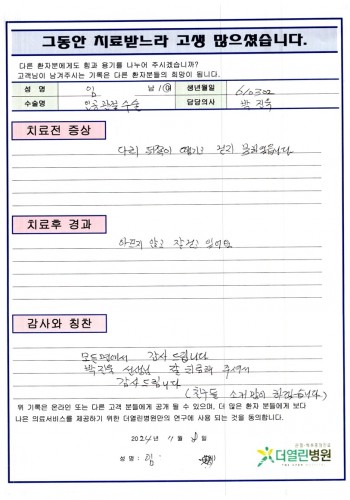 그동안 치료받느라 고생 많으셨습니다.
다른 환자분에게도 힘과 용기를 나누어 주시겠습니까?
고객님이 남겨주시는 기록은 다른 환자분들의 희망이 됩니다.
성 명 임 남 / 여 생년월일 610302
수술명 인공관절수술 담당의사 박진욱
치료전 증상
다리 뒤쪽이 땡기고 걷지 못하였습니다
치료후 경과
아프지 않고 잘 걷고 있어요
감사와 칭찬
모든면에서 감사드립니다
박진욱 선생님 잘 치료해 주셔서
감사드립니다
(친구들 소개 많이 하겠습니다)
위 기록은 온라인 또는 다른 고객 분들에게 공개 될 수 있으며, 더 많은 환자 분들에게 보다
나은 의료서비스를 제공하기 위한 더열린병원만의 연구에 사용 되는 것을 동의합니다.
2024년 11월 일
성 명 : 임
더열린병원